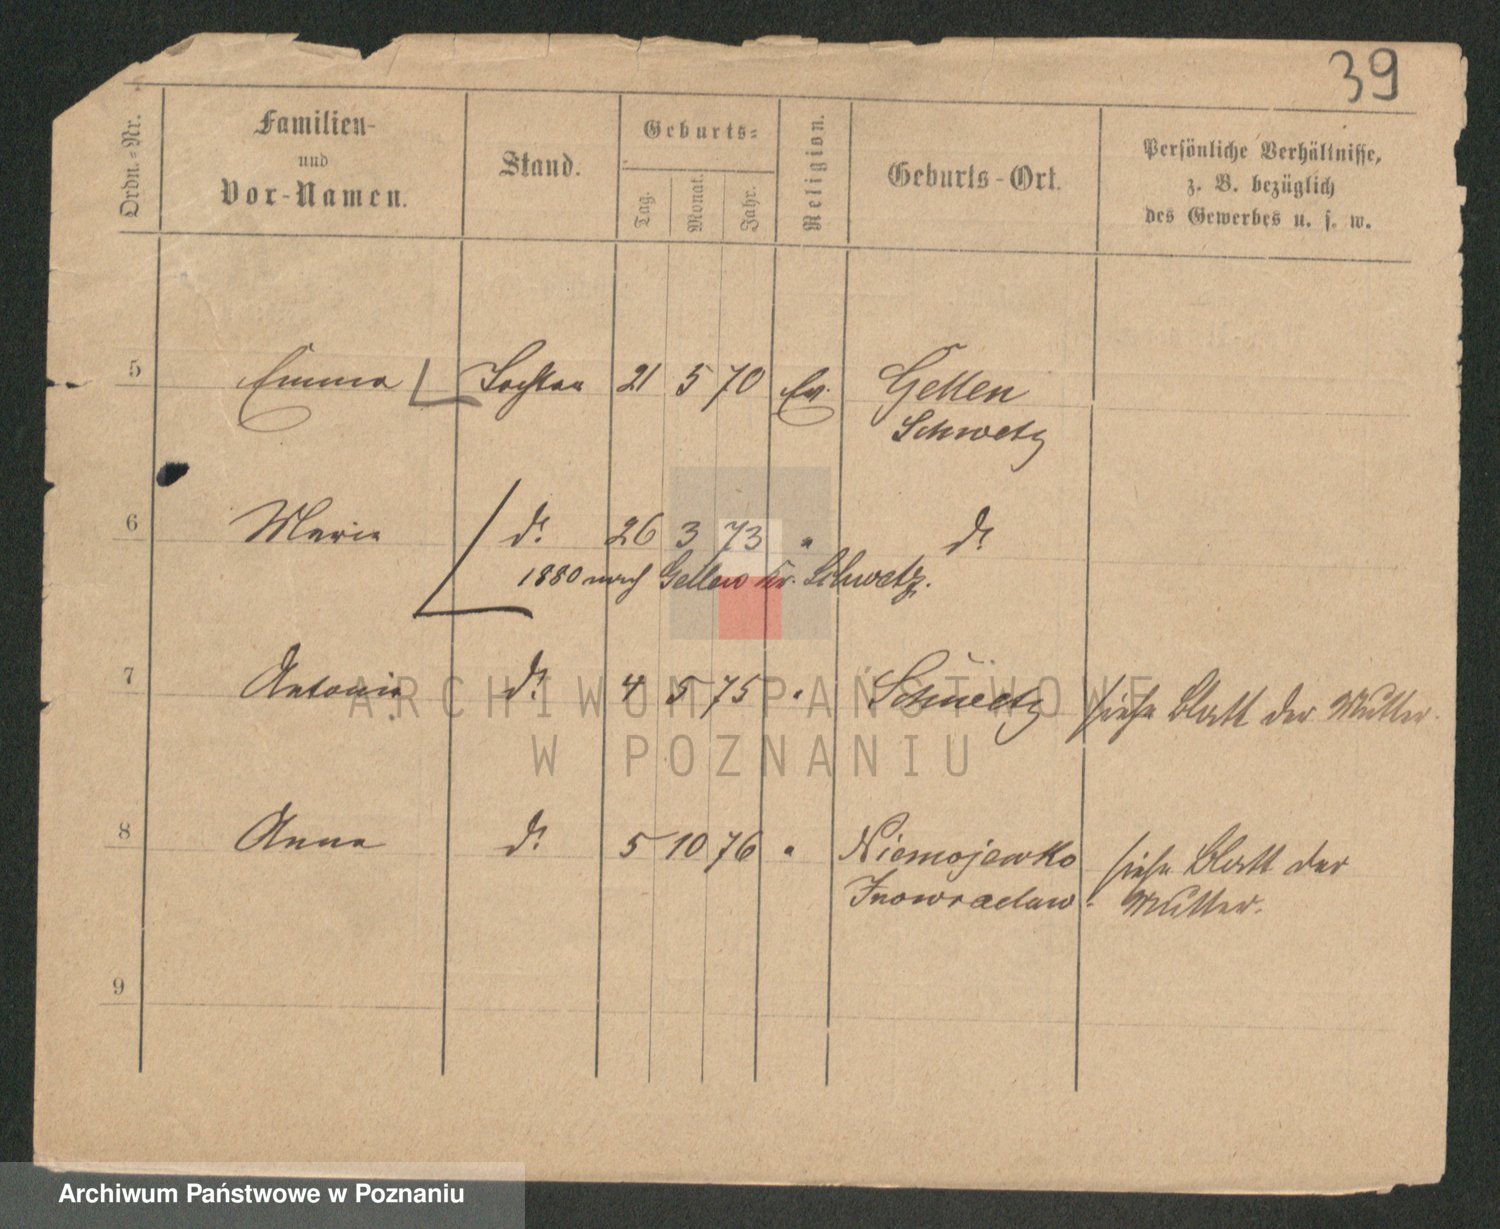 39
Ordn.-Nr.
Familien-
und
Vor-Namen.
Stand.
Geburts-
Tag.
Monat.
Jahr.
Religion.
Geburts-Ort.
Persönliche Verhältnisse,
z. B. bezüglich
des Gewerbes u. s. w.
5 Emma Tochter 21 5 70 Ev. Gellen
Schwetz
6 Marie d° 26 3 73 " d°
1880 nach Gellen Kr. Schwetz.
7 Antonie d° 4 5 75 " Schwetz siehe Blatt der Mutter.
8 Anna d° 5 10 76 " Niemojewko siehe Blatt der
Inowraclaw. Mutter.
9
ARCHIWUM PAŃSTWOWE
W POZNANIU
Archiwum Państwowe w Poznaniu